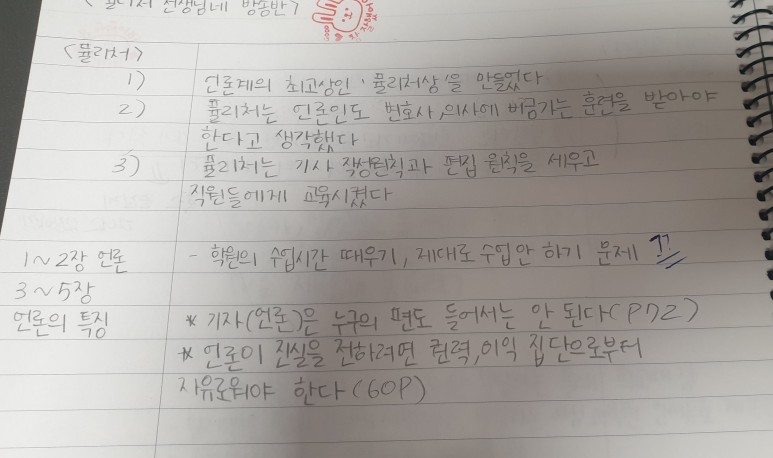 < 퓰리처 선생님네 방송반 >
<퓰리처>
1) 언론계의 최고상인 '퓰리처상'을 만들었다
2) 퓰리처는 언론인도 변호사, 의사에 버금가는 훈련을 받아야
한다고 생각했다
3) 퓰리처는 기사 작성원칙과 편집 원칙을 세우고
직원들에게 교육시켰다
1~2장 언론 - 학원의 수업시간 때우기, 제대로 수업안 하기 문제 ??
3~5장
언론의 특징 * 기자(언론)은 누구의 편도 들어서는 안 된다(P72)
* 언론이 진실을 전하려면 권력, 이익 집단으로부터
자유로워야 한다(60P)